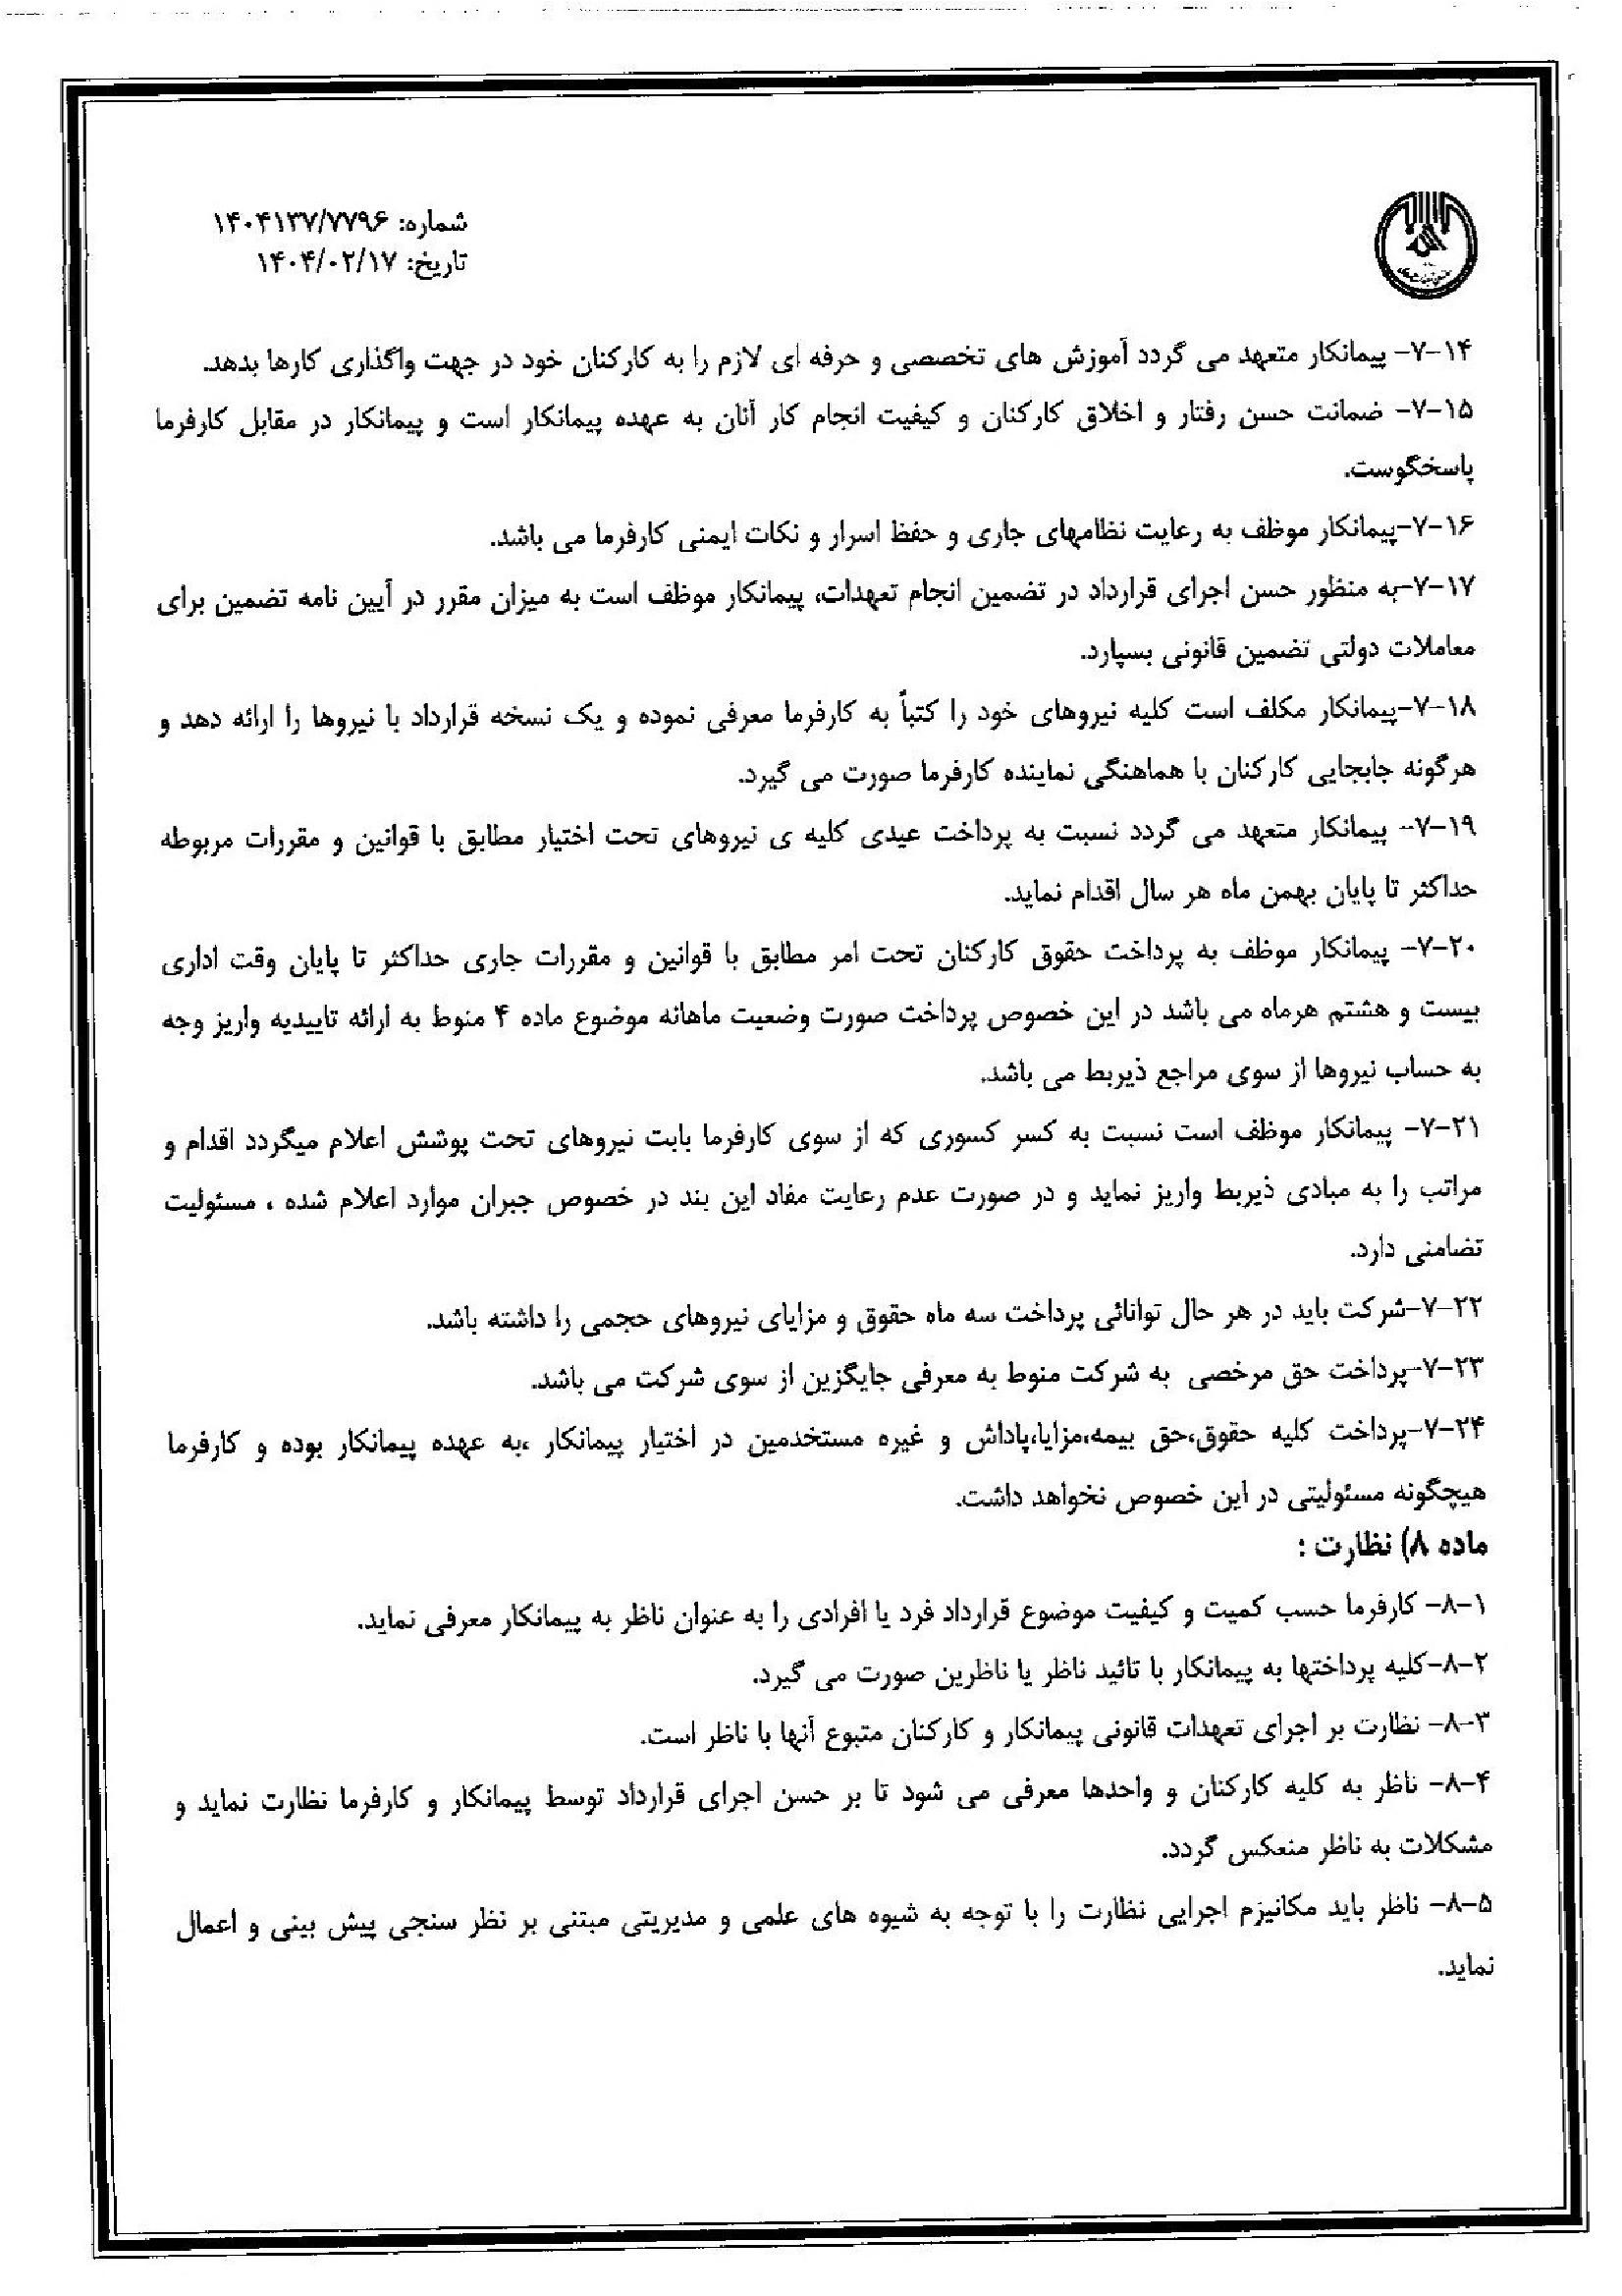 شماره: ۱۴۰۴۱۳۷/۷۷۹۶
تاریخ: ۱۴۰۴/۰۲/۱۷
۷-۱۴- پیمانکار متعهد می گردد آموزش های تخصصی و حرفه ای لازم را به کارکنان خود در جهت واگذاری کارها بدهد.
۷-۱۵- ضمانت حسن رفتار و اخلاق کارکنان و کیفیت انجام کار آنان به عهده پیمانکار است و پیمانکار در مقابل کارفرما
پاسخگوست.
۷-۱۶-پیمانکار موظف به رعایت نظامهای جاری و حفظ اسرار و نکات ایمنی کارفرما می باشد.
۷-۱۷-به منظور حسن اجرای قرارداد در تضمین انجام تعهدات، پیمانکار موظف است به میزان مقرر در آیین نامه تضمین برای
معاملات دولتی تضمین قانونی بسپارد.
۷-۱۸-پیمانکار مکلف است کلیه نیروهای خود را کتباً به کارفرما معرفی نموده و یک نسخه قرارداد با نیروها را ارائه دهد و
هرگونه جابجایی کارکنان با هماهنگی نماینده کارفرما صورت می گیرد.
۷-۱۹- پیمانکار متعهد می گردد نسبت به پرداخت عیدی کلیه ی نیروهای تحت اختیار مطابق با قوانین و مقررات مربوطه
حداکثر تا پایان بهمن ماه هر سال اقدام نماید.
۷-۲۰- پیمانکار موظف به پرداخت حقوق کارکنان تحت امر مطابق با قوانین و مقررات جاری حداکثر تا پایان وقت اداری
بیست و هشتم هرماه می باشد در این خصوص پرداخت صورت وضعیت ماهانه موضوع ماده ۴ منوط به ارائه تاییدیه واریز وجه
به حساب نیروها از سوی مراجع ذیربط می باشد.
۷-۲۱- پیمانکار موظف است نسبت به کسر کسوری که از سوی کارفرما بابت نیروهای تحت پوشش اعلام میگردد اقدام و
مراتب را به مبادی ذیربط واریز نماید و در صورت عدم رعایت مفاد این بند در خصوص جبران موارد اعلام شده ، مسئولیت
تضامنی دارد.
۷-۲۲-شرکت باید در هر حال توانائی پرداخت سه ماه حقوق و مزایای نیروهای حجمی را داشته باشد.
۷-۲۳-پرداخت حق مرخصی به شرکت منوط به معرفی جایگزین از سوی شرکت می باشد.
۷-۲۴-پرداخت کلیه حقوق،حق بیمه،مزایا،پاداش و غیره مستخدمین در اختیار پیمانکار ،به عهده پیمانکار بوده و کارفرما
هیچگونه مسئولیتی در این خصوص نخواهد داشت.
ماده ۸) نظارت :
۸-۱- کارفرما حسب کمیت و کیفیت موضوع قرارداد فرد یا افرادی را به عنوان ناظر به پیمانکار معرفی نماید.
۸-۲-کلیه پرداختها به پیمانکار با تائید ناظر یا ناظرین صورت می گیرد.
۸-۳- نظارت بر اجرای تعهدات قانونی پیمانکار و کارکنان متبوع آنها با ناظر است.
۸-۴- ناظر به کلیه کارکنان و واحدها معرفی می شود تا بر حسن اجرای قرارداد توسط پیمانکار و کارفرما نظارت نماید و
مشکلات به ناظر منعکس گردد.
۸-۵- ناظر باید مکانیزم اجرایی نظارت را با توجه به شیوه های علمی و مدیریتی مبتنی بر نظر سنجی پیش بینی و اعمال
نماید.